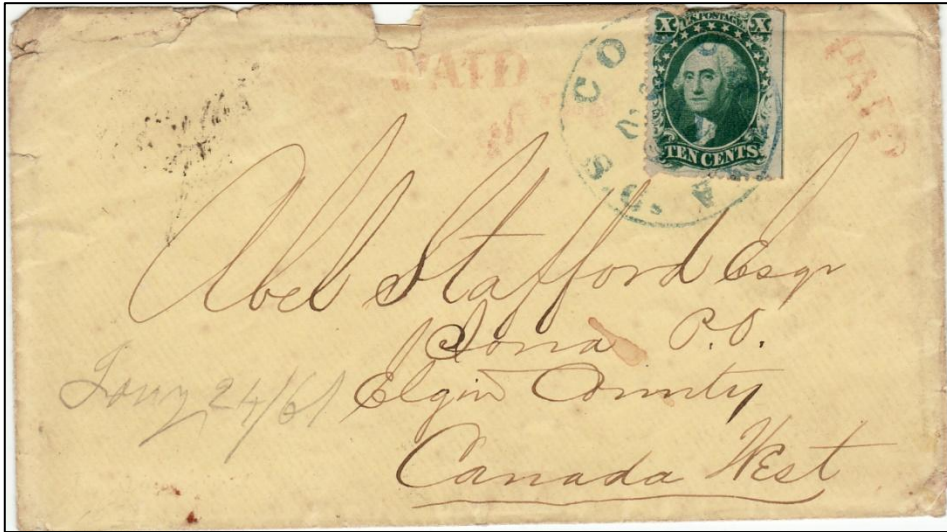 X U.S. POSTAGE X
TEN CENTS
PAID
PAID
CO
S.C.
Abel Stafford Esqr
Iona P.O.
Elgin County
Canada West
Jany 24/61